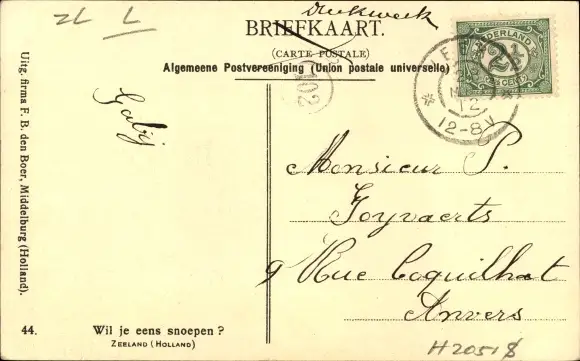 ZL L
Drukwerk
BRIEFKAART.
(CARTE POSTALE)
Algemeene Postvereeniging (Union postale universelle)
NEDERLAND
2½
CENT
12
12-8V
102
Uitg. firma F. B. den Boer, Middelburg (Holland).
Monsieur P.
Goyvaerts
9 Rue Coquilhat
Anvers
44. Wil je eens snoepen?
ZEELAND (HOLLAND)
H2051$